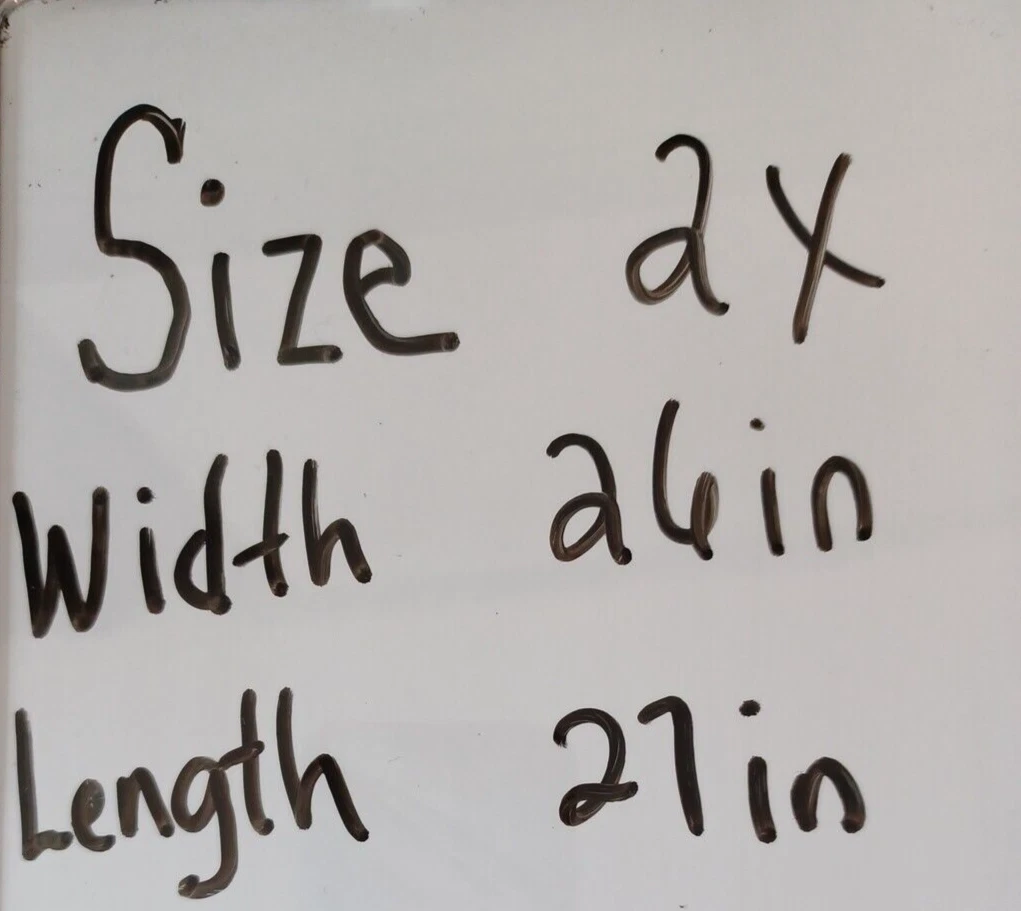 Size 2X
Width 26in
Length 27in